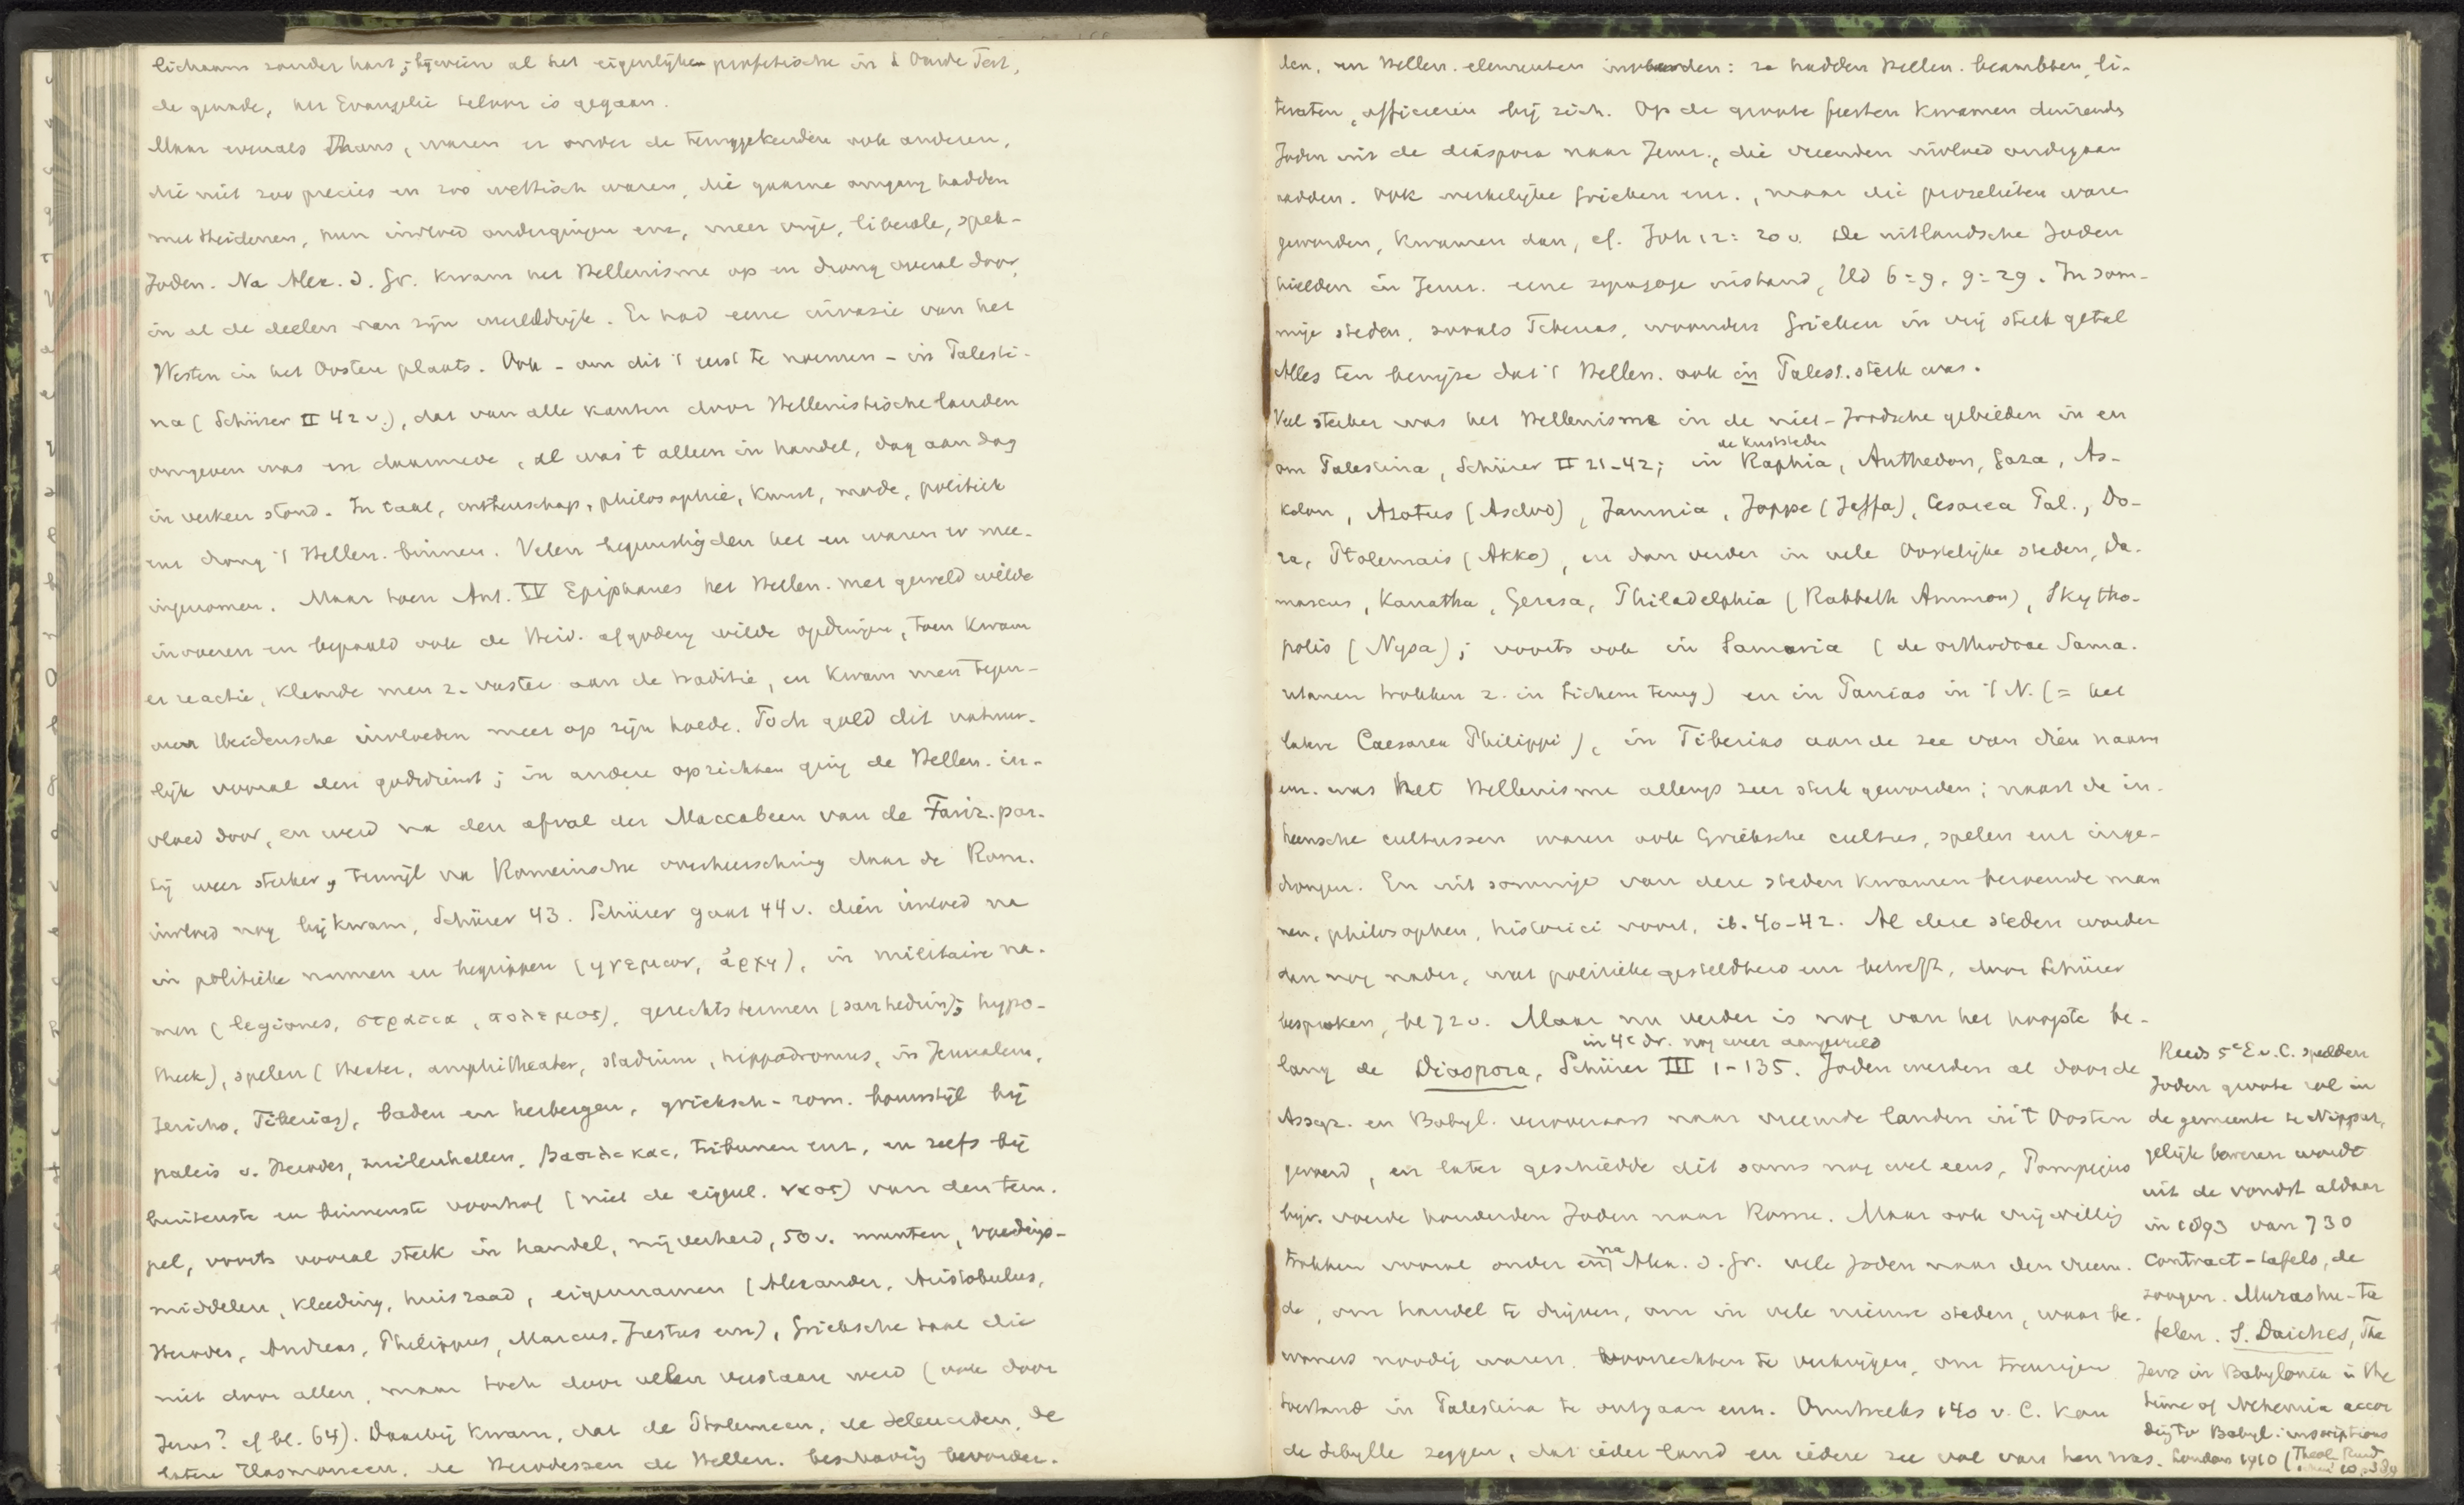 lichaam zonder hart; bijwien al het eigenlijke profetische in d Oude Test,
de genade, het Evangelie teloor is gegaan.
Maar evenals thans, waren er onder de teruggekeerden ook anderen,
die niet zoo precies en zoo wettisch waren, die gaarne omgang hadden
met Heidenen, hun invloed ondergingen enz, meer vrije, liberale,
Joden. Na Alex. d. Gr. kwam het Hellenisme op en drong overal door,
in al de deelen van zijn wereldrijk. Er had eene invasie van het
Westen in het Oosten plaats. Ook - om dit 't eerst te noemen - in Palesti-
na (Schürer II 42 v.), dat van alle kanten door Hellenistische landen
omgeven was en daarmede, al was 't alleen in handel, dag aan dag
in verkeer stond. In taal, wetenschap, philosophie, kunst, mode, politiek
enz drong 't Hellen. binnen. Velen begunstigden het en waren er mee
ingenomen. Maar toen Ant. IV Epiphanes het Hellen. met geweld wilde
invoeren en bepaald ook de Heid. afgoderij wilde opdringen, toen kwam
er reactie, klemde men z. vaster aan de traditie, en kwam men tegen-
over Heidensche invloeden meer op zijn hoede. Toch gold dit natuur-
lijk vooral den godsdienst; in andere opzichten ging de Hellen. in-
vloed door, en werd na den afval der Maccabeen van de Fariz. par-
tij weer sterker, terwijl na Romeinsche overheersching daar de Rom.
invloed nog bij kwam, Schürer 43. Schürer gaat 44 v. dien invloed na
in politieke namen en begrippen (ηγεμων, ἀρχη), in militaire na-
men (legiones, στρατια, πολεμος), gerechtstermen (sanhedrin; hypo-
theek), spelen (theater, amphitheater, stadium, hippodromus, in Jeruzalem,
Jericho, Tiberias), baden en herbergen, grieksch-rom. bouwstijl bij
paleis v. Herodes, zuilenhallen, βασιλικαι, tribunen enz, en zelfs bij
buitenste en binnenste voorhof (niet de eigenl. ναος) van den tem-
pel, voorts vooral sterk in handel, nijverheid, 50 v. munten, voedings-
middelen, kleeding, huisraad, eigennamen (Alexander, Aristobulus,
Herodes, Andreas, Philippus, Marcus, Justus enz), Grieksche taal die
niet door allen, maar toch door velen verstaan werd (ook door
Jezus? cf bl. 64). Daarbij kwam, dat de Ptolemeen, de Seleuciden, de
latere Hasmoneen, de Herodessen de Hellen. beschaving bevorder-
den, en Hellen. elementen invoerden: ze hadden Hellen. beambten, li-
teraten, officieren bij zich. Op de groote feesten kwamen duizende
Joden uit de diaspora naar Jeruz., die vreemden invloed ondergaan
hadden. Ook werkelijke Grieken enz., maar die proselieten ware
geworden, kwamen dan, cf. Joh 12:20 v. De uitlandsche Joden
hielden in Jeruz. eene synagoge in stand, Hd 6:9, 9:29. In som-
mige steden, zooals Tiberias, woonden Grieken in vrij sterk getal
Alles ten bewijze dat 't Hellen. ook in Palest. sterk was.
Veel sterker was het Hellenisme in de niet-Joodsche gebieden in en
de kuststeden
om Palestina, Schürer II 21-42; in Raphia, Anthedon, Gaza, As-
kalon, Azotus (Asdod), Jamnia, Joppe (Jaffa), Cesarea Pal., Do-
ra, Ptolemais (Akko), en dan verder in vele Oostelijke steden, Da-
mascus, Kanatha, Gerasa, Philadelphia (Rabbath Ammon), Skytho-
polis (Nysa); voorts ook in Samaria (de orthodoxe Sama-
ritanen trokken z. in Sichem terug) en in Panias in 't N. (= het
latere Caesarea Philippi), in Tiberias aan de zee van dien naam
enz. was het Hellenisme allengs zeer sterk geworden; naast de in-
heemsche cultussen waren ook Grieksche cultus, spelen enz inge-
drongen. En uit sommige van deze steden kwamen beroemde man
nen, philosophen, historici voort, ib. 40-42. Al deze steden worden
dan nog nader, wat politieke gesteldheid enz betreft, door Schürer
besproken, bl 72 v. Maar nu verder is nog van het hoogste be-
in 4e dr. nog weer aangevuld
lang de Diaspora, Schürer III 1-135. Joden werden al door de
Assyr. en Babyl. veroveraars naar vreemde landen in 't Oosten
gevoerd, en later geschiedde dit soms nog wel eens, Pompejus
bijv. voerde honderden Joden naar Rome. Maar ook vrijwillig
trokken vooral onder en na Alex. d. Gr. vele Joden naar den vreem-
de, om handel te drijven, om in vele nieuwe steden, waar be-
woners noodig waren, voorrechten te verkrijgen, om treurigen
toestand in Palestina te ontgaan enz. Omstreeks 140 v. C. kon
de Sibylle zeggen, dat ieder land en iedere zee vol van hen was.
Reeds 5e E. v. C. speelden
Joden groote rol in
de gemeente te Nippur,
gelijk bewezen wordt
uit de vondst aldaar
in 1893 van 730
contract-tafels, de
zoogen. Murashu-ta
felen. S. Daiches, The
Jews in Babylonia in the
time of Nehemia accor
ding to Babyl. inscriptions
London 1910 (Theol.